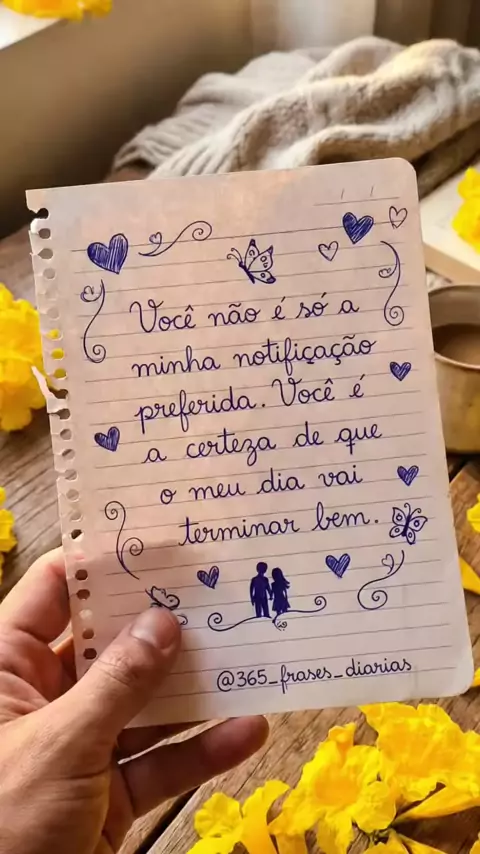 Você não é só a
minha notificação
preferida. Você é
a certeza de que
o meu dia vai
terminar bem.
@365_frases_diarias